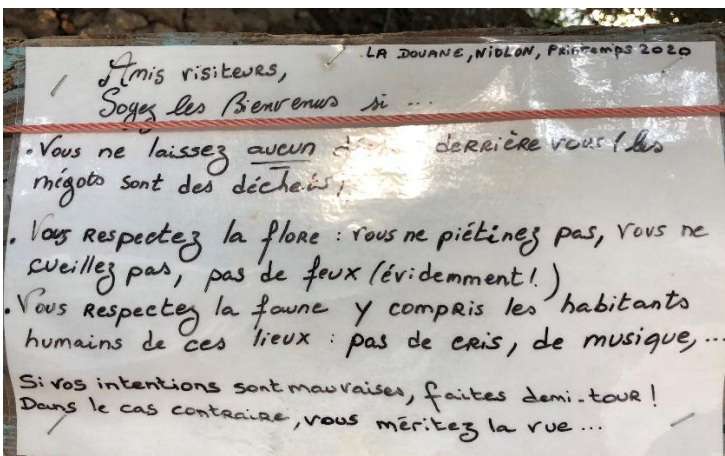 LA DOUANE, NIOLON, PRintemps 2020
Amis visiteurs,
Soyez les Bienvenus si ...
• Vous ne laissez aucun derrière vous (les
mégots sont des déchets)
• Vous Respectez la flore : vous ne piétinez pas, vous ne
cueillez pas, pas de feux (évidemment !)
• Vous Respectez la faune y compris les habitants
humains de ces lieux : pas de cris, de musique, ...
Si vos intentions sont mauvaises, faites demi-tour !
Dans le cas contraire, vous méritez la vue ...